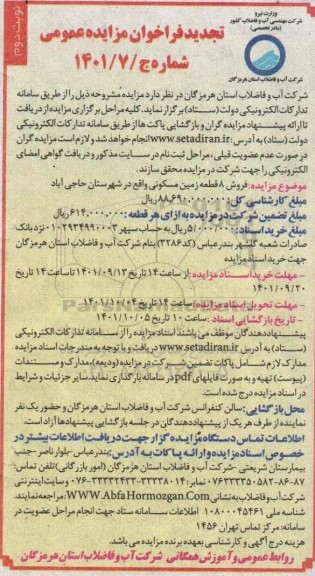 نوبت دوم
وزارت نیرو
شرکت مهندسی آب و فاضلاب کشور
(مادر تخصصی)
شرکت آب و فاضلاب استان هرمزگان
تجدید فراخوان مزایده عمومی
شماره ج/۱۴۰۱/۷
شرکت آب و فاضلاب استان هرمزگان در نظر دارد مزایده مشروحه ذیل را از طریق سامانه
تدارکات الکترونیکی دولت (ستاد) برگزار نماید. کلیه مراحل برگزاری مزایده از دریافت
تا ارائه پیشنهاد مزایده گران و بازگشایی پاکت ها از طریق سامانه تدارکات الکترونیکی
دولت (ستاد) به آدرس www.setadiran.ir انجام خواهد شد و لازم است مزایده گران
در صورت عدم عضویت قبلی، مراحل ثبت نام در سایت مذکور و دریافت گواهی امضای
الکترونیکی را جهت شرکت در مزایده محقق سازند.
موضوع مزایده: فروش ۸ قطعه زمین مسکونی واقع در شهرستان حاجی آباد
مبلغ کارشناسی کل: ریال
مبلغ تضمین شرکت در مزایده به ازای هر قطعه: ۶۱۴,۰۰۰,۰۰۰ ریال
مبلغ خرید اسناد: ۵/۰۰۰/۰۰۰ ریال به حساب سپهر نزد بانک
صادرات شعبه گلشهر بندرعباس (کد ۳۲۸۶) بنام شرکت آب و فاضلاب استان هرمزگان
جهت خرید اسناد مزایده
– مهلت خرید اسناد مزایده: از ساعت ۱۴ تاریخ ۱۴۰۱/۰۹/۱۳ تا ساعت ۱۴ تاریخ
۱۴۰۱/۰۹/۲۰
– مهلت تحویل اسناد مزایده: ساعت ۱۴ تاریخ ۱۴۰۱/۱۰/۰۴
– تاریخ بازگشایی اسناد: ساعت ۱۰ تاریخ ۱۴۰۱/۱۰/۰۵
پیشنهاددهندگان موظف می باشند اسناد مزایده را از سامانه تدارکات الکترونیکی
(ستاد) به آدرس www.setadiran.ir دریافت و با توجه به مندرجات اسناد مزایده
مدارک لازم شامل پاکات تضمین شرکت در مزایده (ودیعه)، مدارک و مستندات
(پیوست) تهیه و به صورت فایلهای pdf در سامانه بارگذاری نماید. سایر جزئیات و شرایط
در اسناد مزایده درج شده است.
محل بازگشایی: سالن کنفرانس شرکت آب و فاضلاب استان هرمزگان و حضور یک نفر
نماینده از طرف هر یک از پیشنهاددهندگان در جلسه بازگشایی پیشنهادها آزاد است.
اطلاعات تماس دستگاه مزایده گزار جهت دریافت اطلاعات بیشتر در
خصوص اسناد مزایده و ارائه پاکات به آدرس: بندرعباس-بلوار ناصر-جنب
بیمارستان شریعتی-شرکت آب و فاضلاب استان هرمزگان (امور بازرگانی) تلفن تماس:
۰۷۶۳۳۳۵۰۵۸۲-۸۶-۸۷ نمابر: و سایت اینترنتی
شرکت آب و فاضلاب به نشانی WWW.AbfaHormozgan.Com مراجعه نمایند.
شناسه ملی ۱۰۸۰۰۰۴۵۴۶۱ اطلاعات تماس سامانه ستاد جهت انجام مراحل عضویت در
سامانه: مرکز تماس تهران ۱۴۵۶
هزینه درج آگهی و کارشناسی بعهده برنده مزایده می باشد.
روابط عمومی و آموزش همگانی شرکت آب و فاضلاب استان هرمزگان